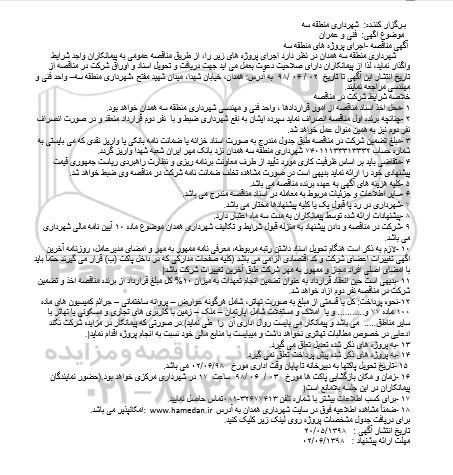 برگزار کننده: شهرداری منطقه سه
موضوع آگهی: فنی و عمران
آگهی مناقصه -اجرای پروژه های منطقه سه
شهرداری منطقه سه همدان در نظر دارد اجرای پروژه های زیر را، از طریق مناقصه عمومی به پیمانکاران واجد شرایط
واگذار نماید، لذا از پیمانکاران دارای صلاحیت دعوت بعمل می آید جهت دریافت و تحویل اسناد و اوراق شرکت در مناقصه از
تاریخ انتشار این آگهی تا تاریخ ۰۲ / ۰۶ / ۹۸ به آدرس: همدان، خیابان شهدا، میدان شهید مفتح ،شهرداری منطقه سه– واحد فنی و
مهندسی مراجعه نمایند.
خلاصه شرایط شرکت در مناقصه
۱ -محل اخذ اسناد مناقصه از امور قراردادها ، واحد فنی و مهندسی شهرداری منطقه سه همدان خواهد بود.
۲ -چنانچه برنده اول مناقصه انصراف نماید سپرده ایشان به نفع شهرداری ضبط و با نفر دوم قرارداد منعقد و در صورت انصراف
نفر دوم نیز به همین منوال عمل خواهد شد.
۳ -مبلغ تضمین شرکت در مناقصه طبق جدول مندرج به صورت اسناد خزانه یا ضمانت نامه بانکی یا واریز نقدی که می بایستی به
شماره حساب شهرداری منطقه سه همدان نزد بانک مهر ایران شعبه شهدا واریز گردد.
۴ -متقاضی باید بر اساس ظرفیت کاری مورد تأیید از طرف معاونت برنامه ریزی و نظارت راهبردی ریاست جمهوری قیمت
پیشنهادی خود را ارائه نماید بدیهی است در صورت مشاهده تخلف ضمانت نامه شرکت در مناقصه وی ضبط خواهد شد.
۵ -کلیه هزینه های آگهی به عهده برنده مناقصه می باشد.
۶ -سایر اطلاعات و جزئیات مربوط به معامله در اسناد مناقصه مندرج می باشد.
۷ -شهرداری در رد یا قبول یک یا کلیه پیشنهادها مختار می باشد.
۸ -پیشنهادات ارائه شده توسط پیمانکاران به مدت سه ماه اعتبار دارد.
۹ -شرکت در مناقصه و دادن پیشنهاد به منزله قبول شرایط و تکالیف شهرداری همدان موضوع ماده ۱۰ آیین نامه مالی شهرداری
می باشد.
۱۰ -لازم به ذکر است هنگام تحویل اسناد داشتن رتبه مربوطه، معرفی نامه ممهور به مهر و امضای مدیرعامل، روزنامه آخرین
آگهی تغییرات اعضای شرکت و کد اقتصادی الزامی می باشد (کلیه صفحات مدارکی که در داخل پاکت (ب) قرار می گیرند حتماً باید
با امضای اصلی افراد مجاز و ممهور به مهر شرکت طبق آخرین تغییرات شرکت باشد)
۱۱ -بدیهی است حین انعقاد قرارداد به عنوان تضمین انجام تعهدات به میزان ۱۰% کل مبلغ قرارداد از برنده مناقصه اخذ و تضمین
شرکت در مناقصه نفر دوم آزاد خواهد شد.
۱۲-نحوه پرداخت: کل یا قسمتی از مبلغ به صورت تهاتر، شامل هرگونه عوارض – پروانه ساختمانی – جرائم کمیسیون های ماده
۱۰۰ ماده ۷۷ و ........... و یا املاک و مستغلات شامل آپارتمان – ملک – زمین با کاربری های تجاری و مسکونی یا تهاتر با
سایر مناطق....... می باشد و پیمانکار می بایست روال اداری آن را طی نماید).در صورتی که پیمانکار در مزایده شرکت نکند
ادعایی در خصوص مطالبات تهاتری نخواهد داشت و میبایست با منابع مالی خود نسبت به انجام پروژه اقدام نماید).
۱۳ -به پروژه های ذکر شده تعدیل تعلق می گیرد.
۱۴ -به پروژه های ذکر شده پیش پرداخت تعلق نمی گیرد.
۱۵ -تاریخ تحویل پاکتها به دبیرخانه تا پایان وقت اداری مورخ ۰۲/۰۶/۹۸ می باشد.
۱۶ -زمان و مکان بازگشایی پاکت ها مورخ ۰۳ / ۰۶ / ۹۸ ساعت ۱۷ در شهرداری مرکزی خواهد بود.(حضور نمایندگان
پیمانکاران در این جلسه بلامانع است)
۱۷ -برای کسب اطلاعات بیشتر با شماره تلفن ۳۲۶۷۷۴۱۳-۰۸۱تماس حاصل نمایید.
۱۸ -ضمناً مشاهده اطلاعیه فوق در سایت شهرداری همدان به آدرس www.hamedan.ir :امکانپذیر می باشد.
برای دریافت جدول مشخصات پروژه روی لینک زیر کلیک کنید.
تاریخ انتشار آگهی : ۲۰/۰۵/۱۳۹۸
مهلت ارائه پیشنهاد : ۰۲/۰۶/۱۳۹۸